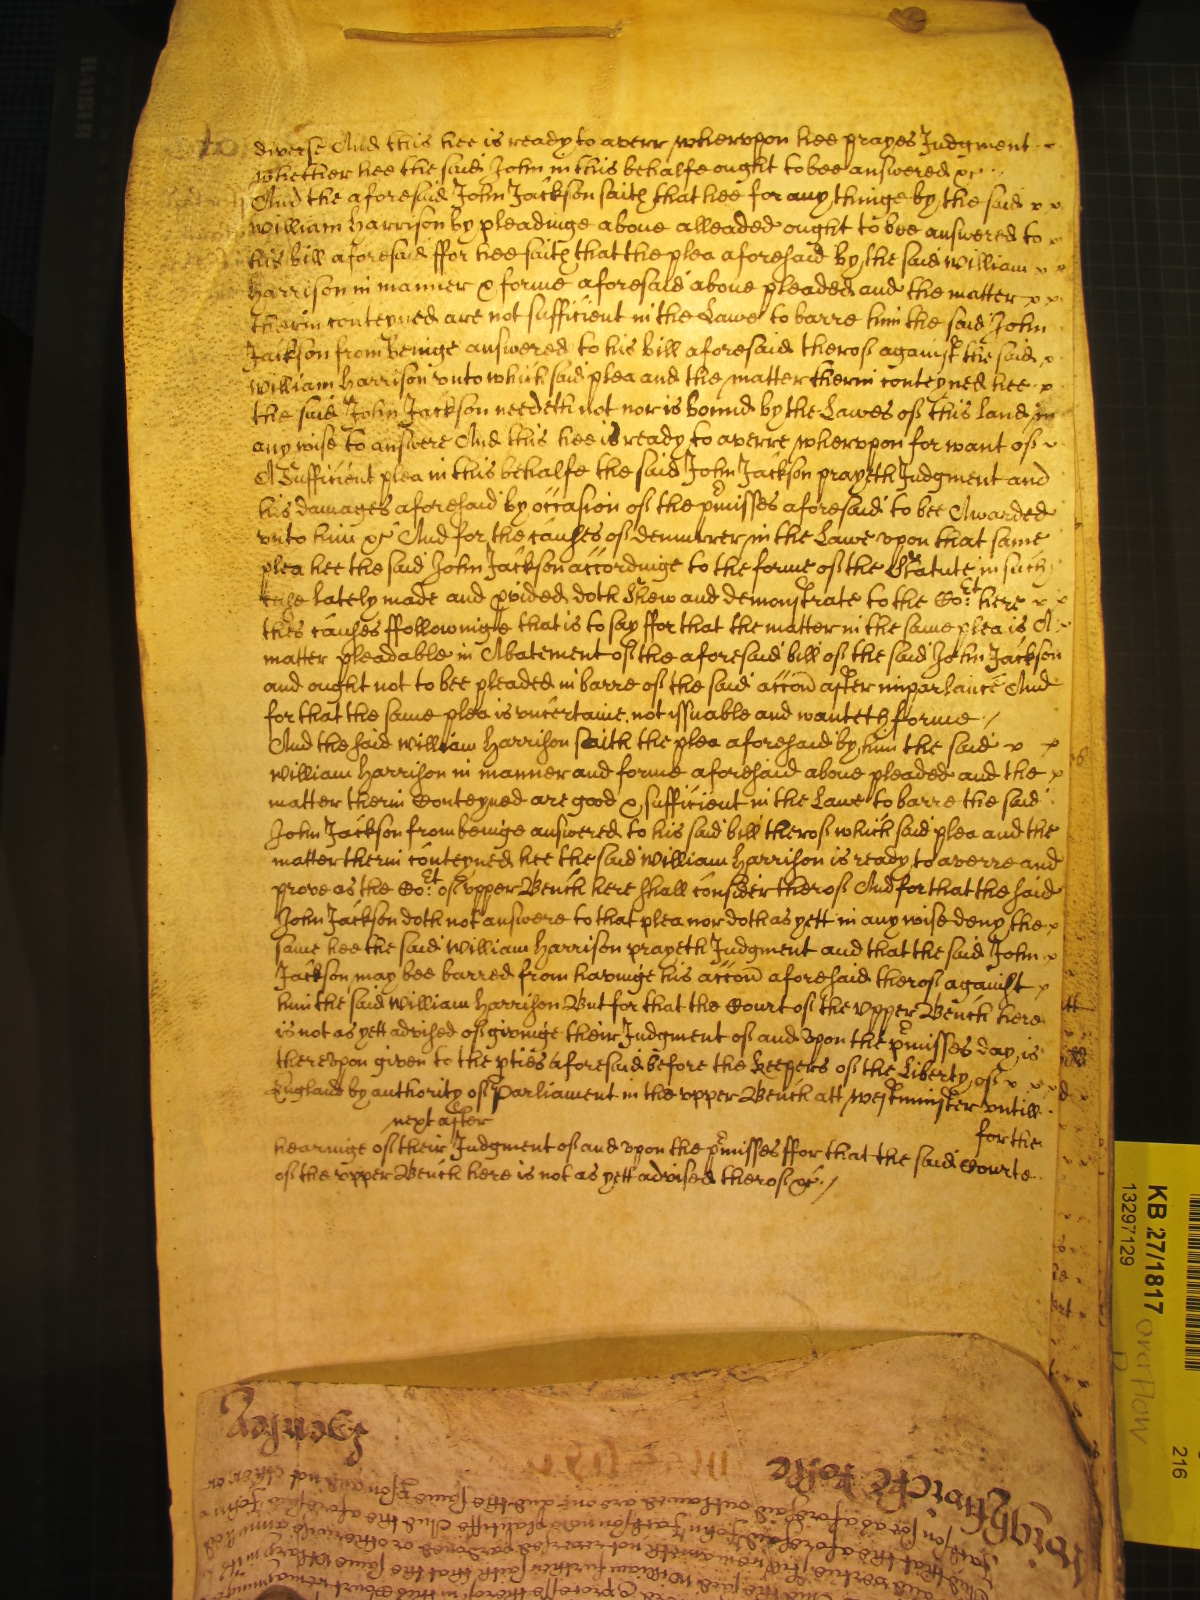 diverse And this hee is ready to averr whervpon hee prayes Judgment
whether hee the said John in this behalfe ought to bee answered &c
And the aforesaid John Jackson saith that hee for any thinge by the said
William Harrison by pleadinge aboue alleaded ought to bee answered to
his bill aforesaid ffor hee saith that the plea aforesaid by the said William
Harrison in manner & forme aforesaid aboue pleaded and the matter
therin conteyned are not sufficient in the Lawe to barre him the said John
Jackson from beinge answered to his bill aforesaid therof against the said
William Harrison vnto which said plea and the matter therin conteyned hee
the said John Jackson needeth not nor is bound by the Lawes of this land in
any wise to answere And this hee is ready to averre whervpon for want of
A Sufficient plea in this behalfe the said John Jackson prayeth Judgment and
his damages aforesaid by occasion of the pmisses aforesaid to bee Awarded
vnto him &c And for the causes of demurrer in the Lawe vpon that same
plea hee the said John Jackson accordinge to the forme of the Statute in such
case lately made and pvided doth Shew and demonstrate to the Cort here
thes causes ffollowinge that is to say ffor that the matter in the same plea is A
matter pleadable in Abatement of the aforesaid bill of the said John Jackson
and ought not to bee pleaded in barre of the said accon after imparlance And
for that the same plea is vncertaine not issuable and wanteth forme /
And the said William Harrison Saith the plea aforesaid by him the said
William Harrison in manner and forme aforesaid aboue pleaded and the
matter therin Conteyned are good & sufficient in the Lawe to barre the said
John Jackson from beinge answered to his said bill therof which said plea and the
matter therin conteyned hee the said William Harrison is ready to averre and
prove as the Cort of vpper Bench here shall consider therof And for that the said
John Jackson doth not answere to that plea nor doth as yett in any wise deny the
same hee the said William Harrison prayeth Judgment and that the said John
Jackson may bee barred from havinge his accon aforesaid therof against
him the said William Harrison But for that the Court of the Vpper Bench here
is not as yett advised of givinge their Judgment of and vpon the pmisses day is
therevpon given to the pties aforesaid before the Keepers of the Liberty of
England by authority of Parliament in the vpper Bench att Westminster vntill
next after for the
hearinge of their Judgment of and vpon the pmisses ffor that the said Courte
of the vpper Bench here is not as yett advised therof &c /
KB 27/1817
13297129
overflow
216